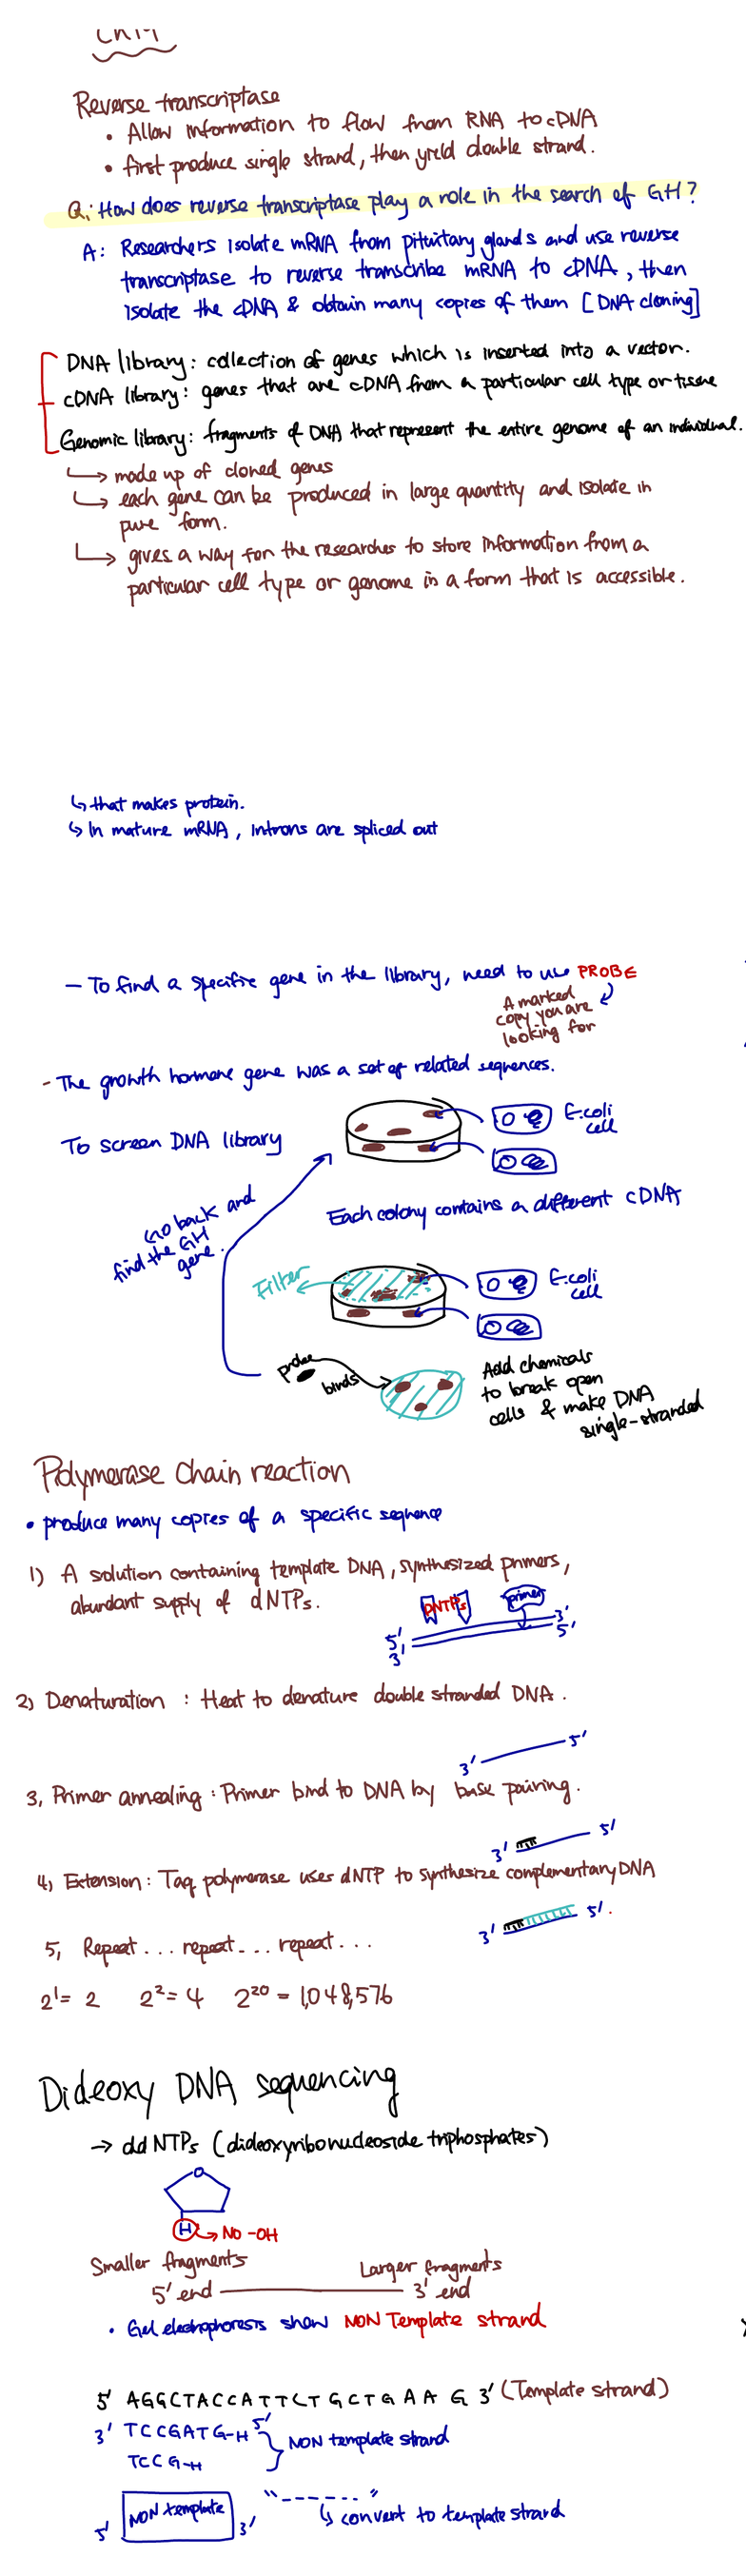 Reverse transcriptase
• Allow information to flow from RNA to cDNA
• first produce single strand, then yield double strand.
Q: How does reverse transcriptase play a role in the search of GH?
A: Researchers isolate mRNA from pituitary glands and use reverse
transcriptase to reverse transcribe mRNA to cDNA, then
isolate the cDNA & obtain many copies of them [DNA cloning]
DNA library: collection of genes which is inserted into a vector.
cDNA library: genes that are cDNA from a particular cell type or tissue
Genomic library: fragments of DNA that represent the entire genome of an individual.
↳ made up of cloned genes
↳ each gene can be produced in large quantity and isolate in
pure form.
↳ gives a way for the researcher to store information from a
particular cell type or genome in a form that is accessible.
↳ that makes protein.
↳ In mature mRNA, introns are spliced out
- To find a specific gene in the library, need to use PROBE
A marked
copy you are
looking for
- The growth hormone gene was a set of related sequences.
To screen DNA library
E.coli
cell
Go back and
find the GH
gene.
Each colony contains a different cDNA
Filter
E.coli
cell
probe
binds
Add chemicals
to break open
cells & make DNA
single-stranded
Polymerase Chain reaction
• produce many copies of a specific sequence
1) A solution containing template DNA, synthesized primers,
abundant supply of dNTPs.
dNTPs primer
5' 3'
3' 5'
2) Denaturation : Heat to denature double stranded DNA.
3' 5'
3, Primer annealing : Primer bind to DNA by base pairing.
3' 5'
4, Extension : Taq polymerase uses dNTP to synthesize complementary DNA
3' 5'.
5, Repeat... repeat... repeat...
2¹ = 2 2² = 4 2²⁰ = 1,048,576
Dideoxy DNA sequencing
→ dd NTPs (dideoxyribonucleoside triphosphates)
O
H → No -OH
Smaller fragments Larger fragments
5' end 3' end
• Gel electrophoresis show NON Template strand
5' AGGCTACCATTCTGCTGAAG 3' (Template strand)
3' TCCGATG-H 5'
TCCG-H
NON template strand
5' NON template 3' "------"
↳ convert to template strand